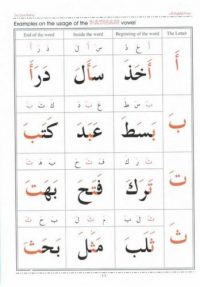 Examples on the usage of the FATHAH vowel
End of the word Inside the word Beginning of the word The Letter
أ خ ذ س أ ل د ر أ
أَ أَخَذَ سَأَلَ دَرَأَ
ب س ط ع ب د ك ت ب
بَ بَسَطَ عَبَدَ كَتَبَ
ت ر ك ف ت ح ب ه ت
تَ تَرَكَ فَتَحَ بَهَتَ
ث ل ب م ث ل ب ح ث
ثَ ثَلَبَ مَثَلَ بَحَثَ